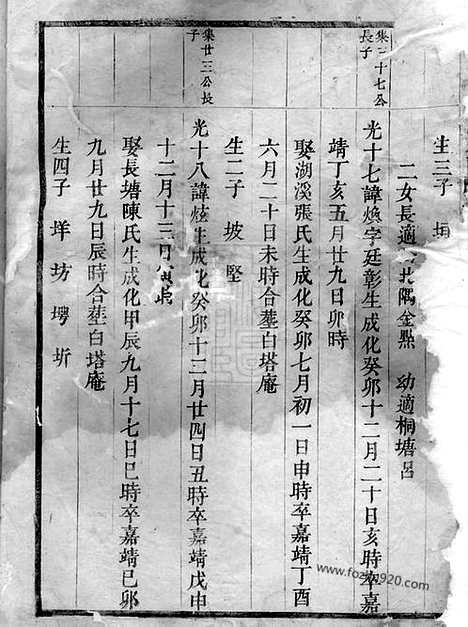 生三子
二女長適 北隅金㸃 幼適桐塘呂
集 十七公長子
光十七諱煥字廷彰生成化癸卯十二月二十日亥時卒嘉
靖丁亥五月廿九日卯時
娶湖溪張氏生成化癸卯七月初一日申時卒嘉靖丁酉
六月二十日未時合塟白塔庵
生二子 坡 堅
集廿三公長子
光十八諱炫生成化癸卯十二月廿四日丑時卒嘉靖戊申
十二月十三日寅時
娶長塘陳氏生成化甲辰九月十七日巳時卒嘉靖已卯
九月廿九日辰時合塟白塔庵
生四子 垟 坊 塄 圻
www.foz920.com